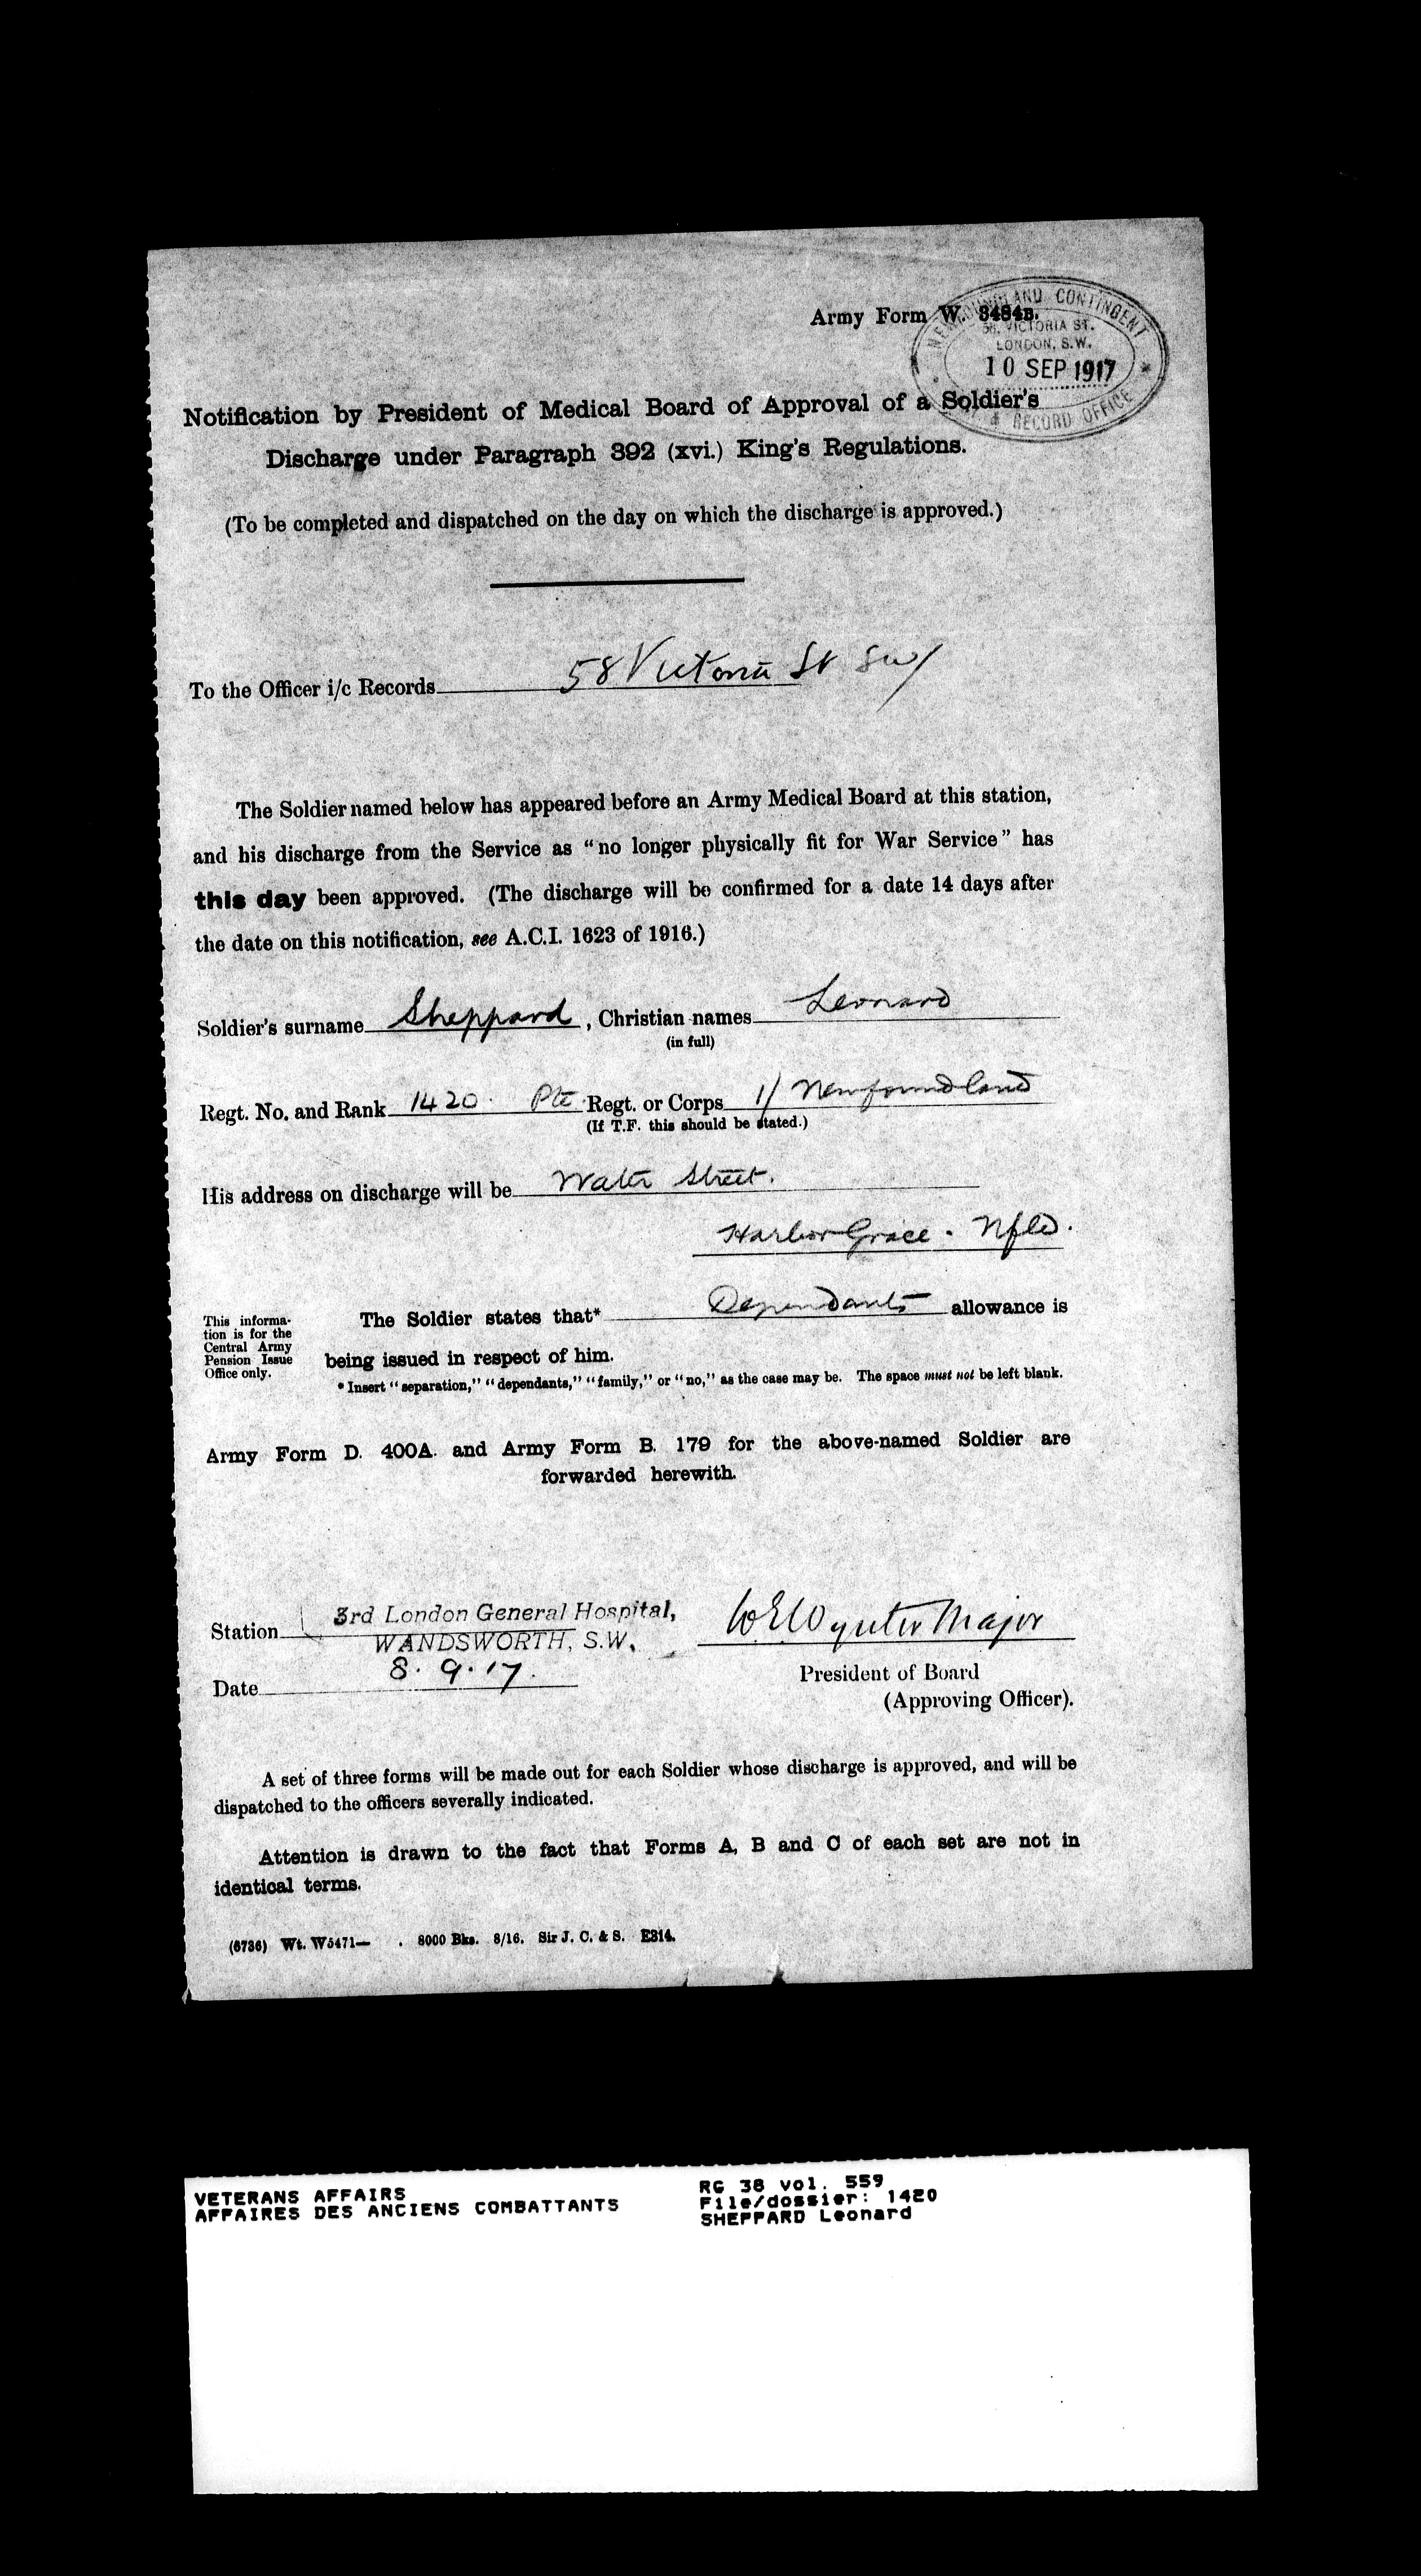 Army Form W. 3484B.
NEWFOUNDLAND CONTINGENT
58. VICTORIA ST.
LONDON, S.W.
10 SEP 1917
RECORD OFFICE
Notification by President of Medical Board of Approval of a Soldier's
Discharge under Paragraph 392 (xvi.) King's Regulations.
(To be completed and dispatched on the day on which the discharge is approved.)
To the Officer i/c Records 58 Victoria St SW/
The Soldier named below has appeared before an Army Medical Board at this station,
and his discharge from the Service as “no longer physically fit for War Service” has
this day been approved. (The discharge will be confirmed for a date 14 days after
the date on this notification, see A.C.I. 1623 of 1916.)
Soldier's surname Sheppard, Christian names Leonard
(in full)
Regt. No. and Rank 1420. Pte Regt. or Corps 1/ Newfoundland
(If T.F. this should be stated.)
His address on discharge will be Water Street.
Harbor Grace. Nfld.
This informa-
tion is for the
Central Army
Pension Issue
Office only.
The Soldier states that* Dependants allowance is
being issued in respect of him.
*Insert “separation,” “dependants,” “family,” or “no,” as the case may be. The space must not be left blank.
Army Form D. 400A. and Army Form B. 179 for the above-named Soldier are
forwarded herewith.
Station 3rd London General Hospital,
WANDSWORTH, S.W.
W E Wynter Major
Date 8.9.17.
President of Board
(Approving Officer).
A set of three forms will be made out for each Soldier whose discharge is approved, and will be
dispatched to the officers severally indicated.
Attention is drawn to the fact that Forms A, B and C of each set are not in
identical terms.
(6736) Wt. W5471— . 8000 Bks. 8/16. Sir J. C. & S. E314.
VETERANS AFFAIRS
AFFAIRES DES ANCIENS COMBATTANTS
RG 38 vol. 559
File/dossier: 1420
SHEPPARD Leonard